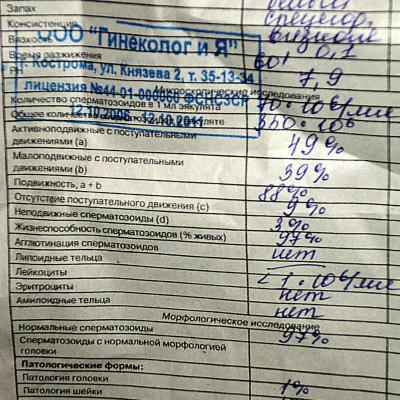 Запах
Консистенция
Вязкость 0,1
Время разжижения 60'
РН 7,9
ООО "Гинеколог и Я"
г. Кострома, ул. Князева 2, т. 35-13-34
лицензия №44-01-000060 ФСНСЗСР
12.10.2006 - 12.10.2011
Микроскопические исследования
Количество сперматозоидов в 1 мл эякулята 70·10⁶/мл
Общее количество сперматозоидов в эякуляте 350·10⁶
Активноподвижные с поступательными
движениями (а) 49%
Малоподвижные с поступательными
движениями (b) 39%
Подвижность, a + b 88%
Отсутствие поступательного движения (с) 9%
Неподвижные сперматозоиды (d) 3%
Жизнеспособность сперматозоидов (% живых) 97%
Агглютинация сперматозоидов нет
Липоидные тельца
Лейкоциты < 1·10⁶/мл
Эритроциты нет
Амилоидные тельца нет
Морфологическое исследование
Нормальные сперматозоиды 97%
Сперматозоиды с нормальной морфологией
головки
Патологические формы:
Патология головки
Патология шейки 1%